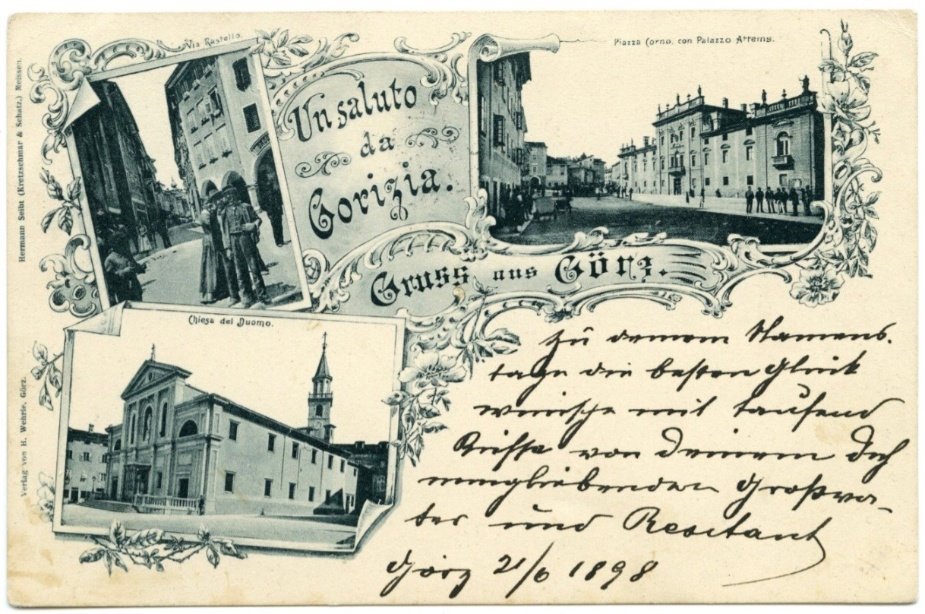 Via Rastello.
Un saluto
da
Gorizia.
Piazza Corno, con Palazzo Attems.
Gruss aus Görz.
Chiesa del Duomo.
Hermann Seibt (Kretzschmar & Schatz.) Meissen.
Verlag von H. Wehrle, Görz.
zu deinem Namens-
tage die besten Glück
wünsche mit tausend
Küsse von deinem Dich
innigliebenden Großva-
ter und
Görz 21/6 1898